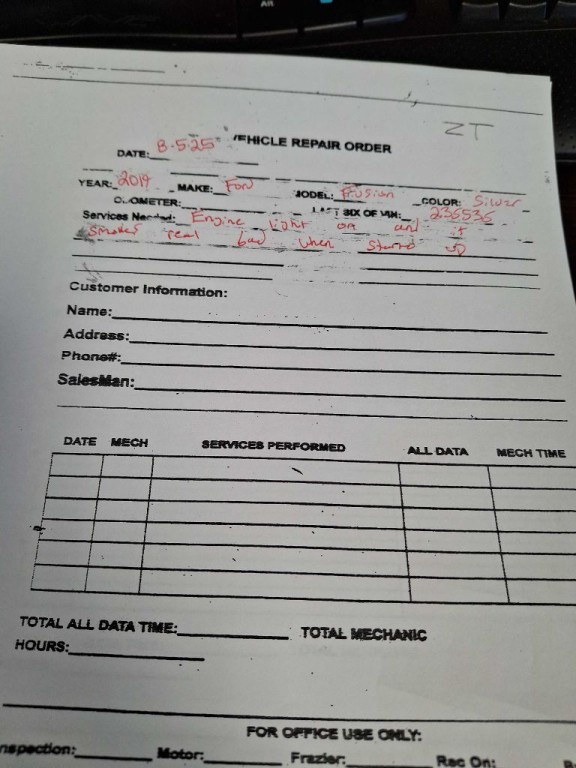 ZT
VEHICLE REPAIR ORDER
DATE: 8-5-25
YEAR: 2019 MAKE: Ford MODEL: Fusion COLOR: Silver
ODOMETER: LAST SIX OF VIN: 235535
Services Needed: Engine light on and it
smokes real bad when started up
Customer Information:
Name:
Address:
Phone#:
SalesMan:
DATE MECH SERVICES PERFORMED ALL DATA MECH TIME
TOTAL ALL DATA TIME: TOTAL MECHANIC
HOURS:
FOR OFFICE USE ONLY:
nspection: Motor: Frazier: Rec On: